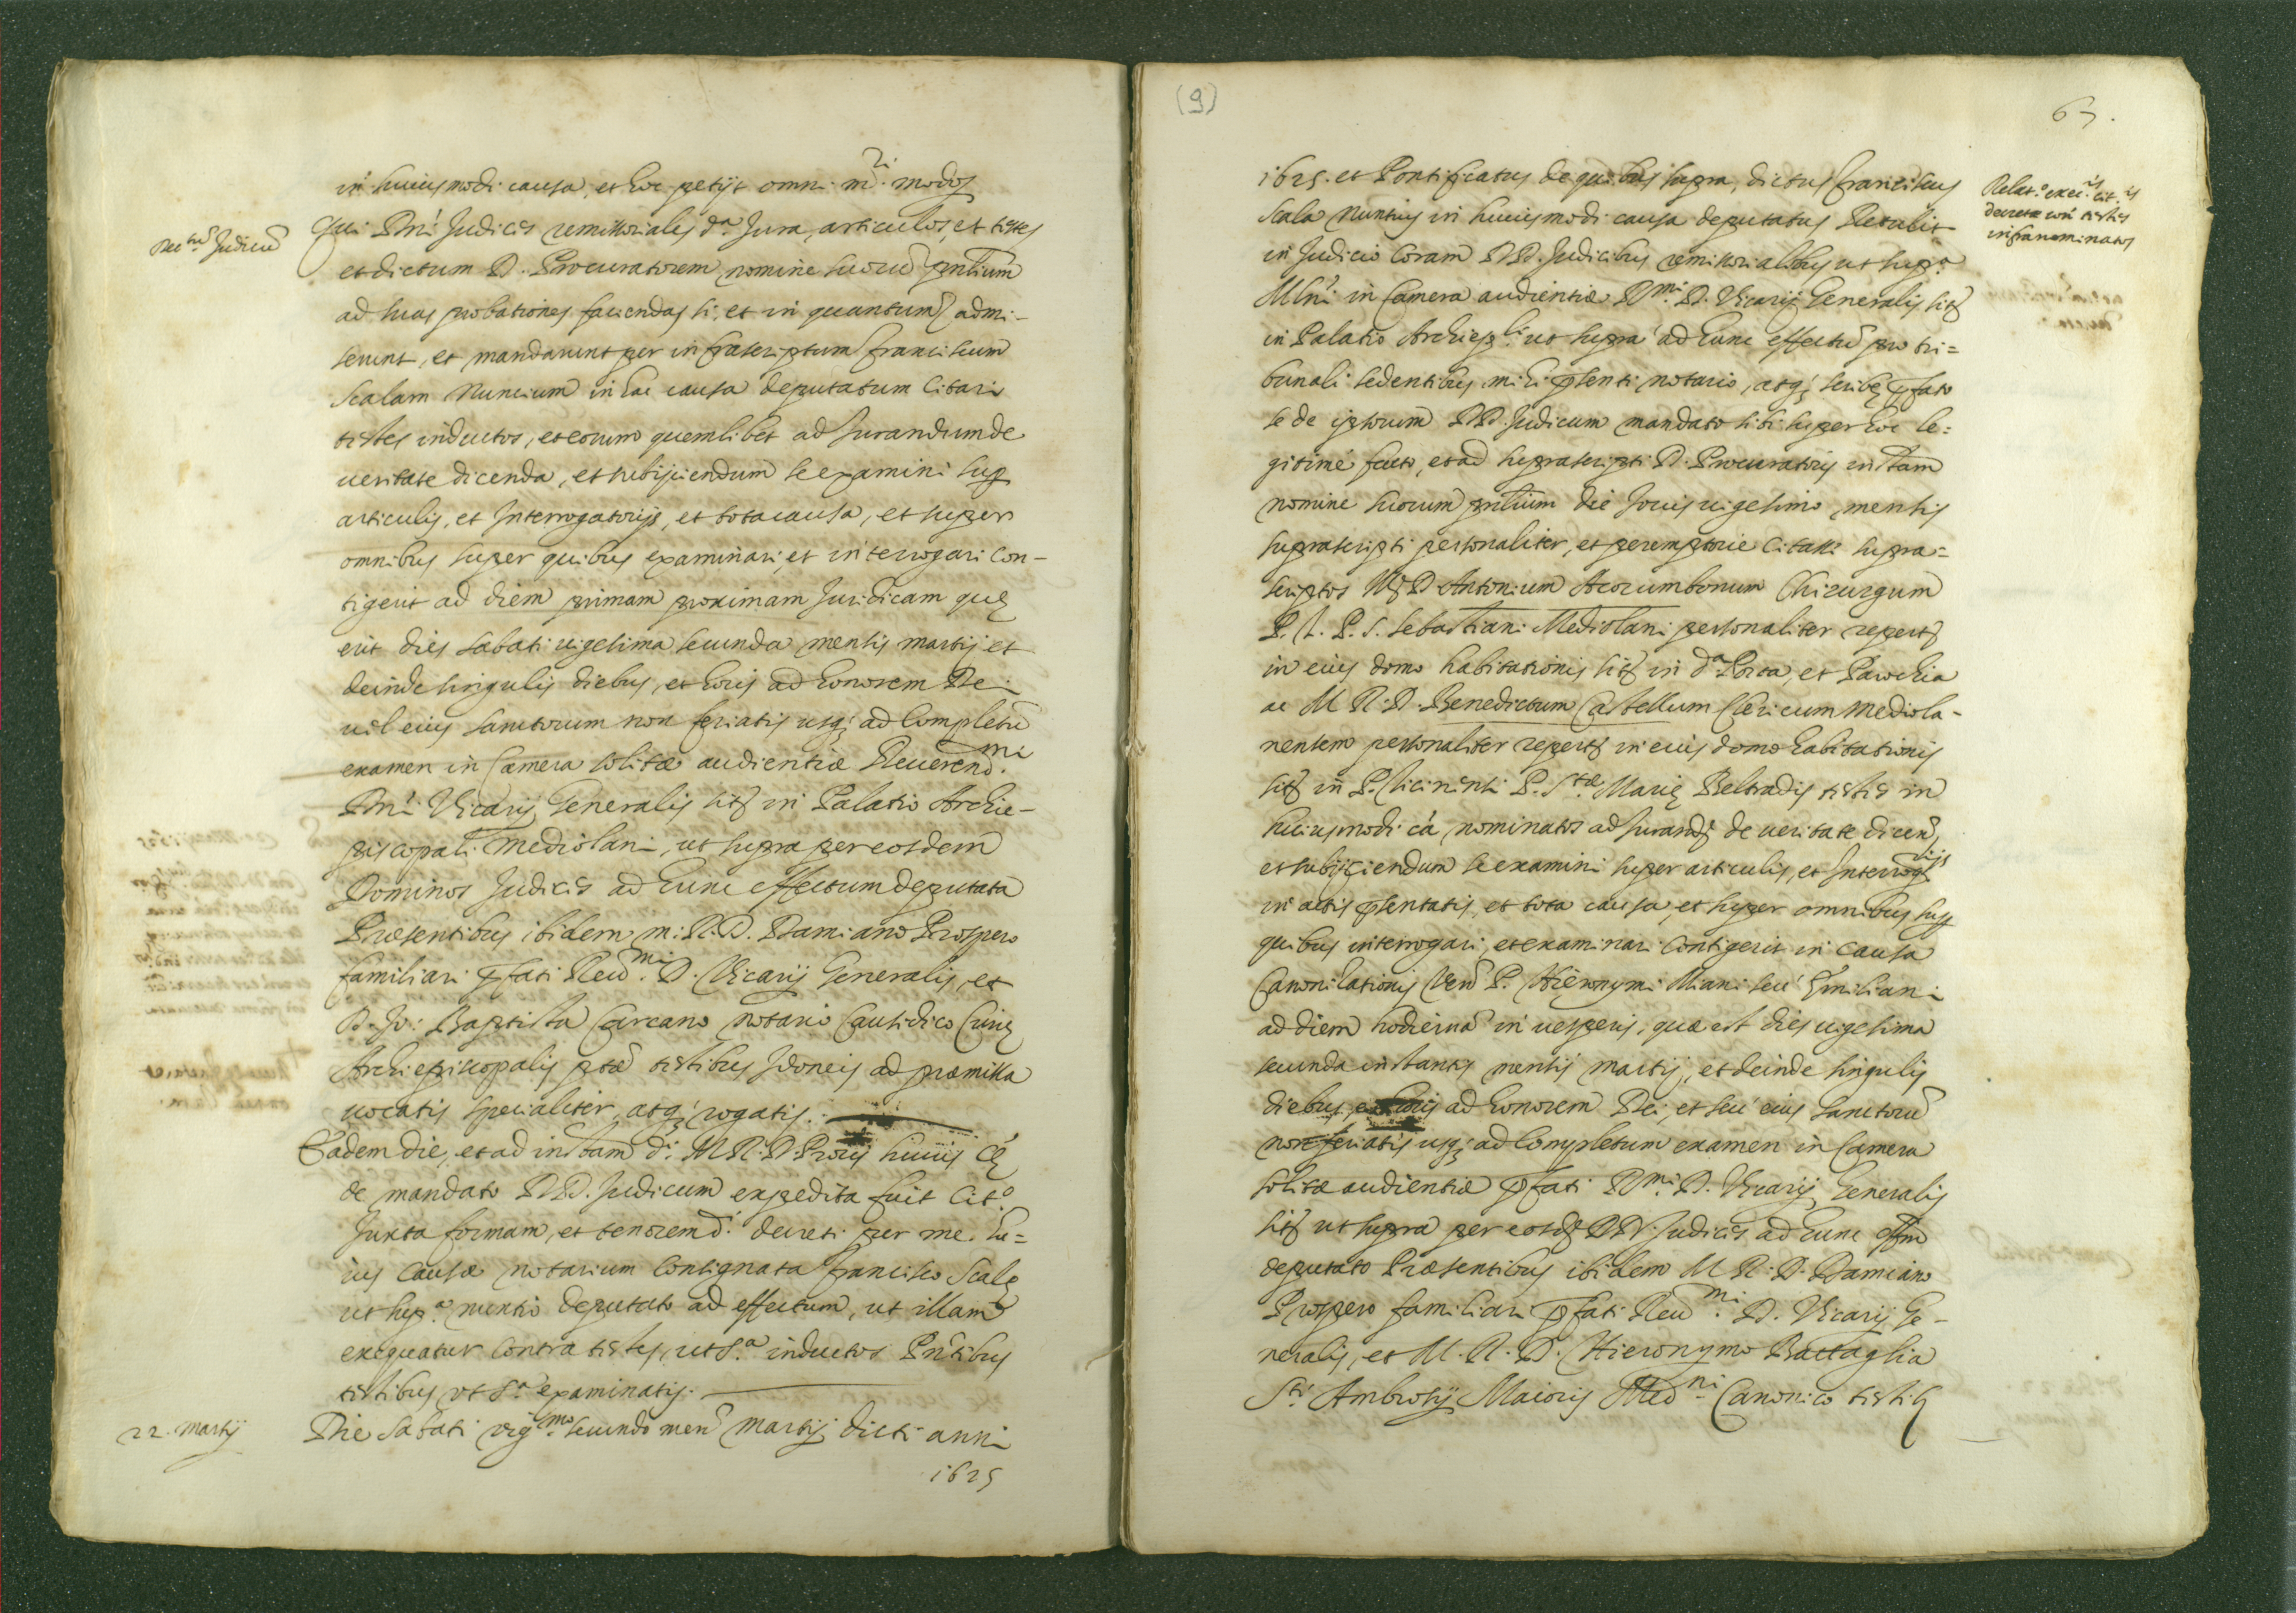 in huiusmodi causa, et hoc petijt omni m.ri modo
Dec.tum Judicũ
Qui Dni Judices remissoriales d.a Jura, articulos, et testes
et dictum D. Procuratorem nomine suorũ pntium
ad suas probationes faciendas si, et in quantum admi-
serunt, et mandarunt per infrascriptum franciscum
Scalam Nuncium in hac causa deputatum Citari
testes inductos, et eorum quemlibet ad Jurandum de
ueritate dicenda, et subijciendum se examini sup
articulis, et Interrogatorijs, et tota causa, et super
omnibus super quibus examinari, et interrogari con-
tigerit ad diem primam proximam Juridicam quę
erit dies Sabati uigesima secunda mensis martij et
deinde singulis diebus, et horis ad honorem Dei
uel eius sanctorum non feriatis usq; ad Completũ
examen in Camera solitæ audientiæ Reuerend.mi
Dni Vicarij Generalis sit in Palatio Archie-
piscopali Mediolani, ut supra per eosdem
Dominos Judices ad hunc effectum deputata
Præsentibus ibidem m. R. D. Damiano Prospero
familiari pfati Reu.mi D. Vicarij Generalis, et
D. Jo: Baptista Carcano notario Causidico Curię
Archiepiscopalis ptæ testibus Idoneis ad præmissa
uocatis specialiter, atq; rogatis.
Eadem die, et ad instam d.i M R. D. Proris huius Cę
de mandato DD. Judicum expedita fuit Cit.o
Juxta formam, et tenorem d.i decreti per me hu=
ius Causæ notarium Consignata francisco Scalę
ut sup.a nuntio deputato ad effectum, ut illam
exequatur Contra testes, ut s.a inductos Pntibus
testibus ut s.a examinatis.
22. Martij
Die Sabati vig.mo secundo men martij dicti anni
1625
(9)
63.
1625. et Pontificatus de quibus supra, dictus franciscus
Scala Nuntius in huiusmodi causa deputatus Retulit
Relat.o exec.is cit.is
decretæ con testes
infranominatos
in Judicio Coram DD. Judicibus remissorialibus ut sup.a
Mlni in Camera audientiæ Rmi D. Vicarij Generalis sit
in Palatio Archiepli ut supra ad hunc effectũ pro tri=
bunali sedentibus mihi psenti notario, atq; scribę pfato
se de ipsorum DD. Judicum mandato sibi super hoc le=
gitime facto, et ad suprascripti D. Procuratoris instam
nomine suorum pntium die Jouis uigesimo mensis
suprascripti personaliter, et peremptorie Citasse supra=
scriptos M D Antonium Acorumbonum Chirurgum
P. T. P. S. Sebastiani Mediolani personaliter repert
in eius domo habitationis sit in d.a Porta, et Parochia
ac M R. D. Benedictum Castellum Clericum Mediola-
nensem personaliter repert in eius domo habitationis
sit in P. Ticinensi P. S.tæ Marię Beltradis testes in
huiusmodi cá nominatos ad Jurand de ueritate dicen,
et subijciendum se examini super articulis, et Interrog.rijs
in actis psentatis, et tota causa, et super omnibus sup
quibus interrogari, et examinari Contigerit in Causa
Canonizationis Ven P. Hieronymi Miani seu Emiliani
ad diem hodierná in uesperis, quæ est dies uigesima
secunda instantis mensis martij, et deinde singulis
diebus, et horis ad honorem Dei, et seu eius Sanctorũ
non feriatis usq; ad Completum examen in Camera
solitæ audientiæ pfati Rmi D. Vicarij Generalis
sit ut supra per eosd DD. Judices ad hunc effm
deputato Præsentibus ibidem M R. D. Damiano
Prospero familiari pfati Reu.mi D. Vicarij Ge-
neralis, et M. R. D. Hieronymo Battaglia
S.ti Ambrosij Maioris Med.ni Canonico testib